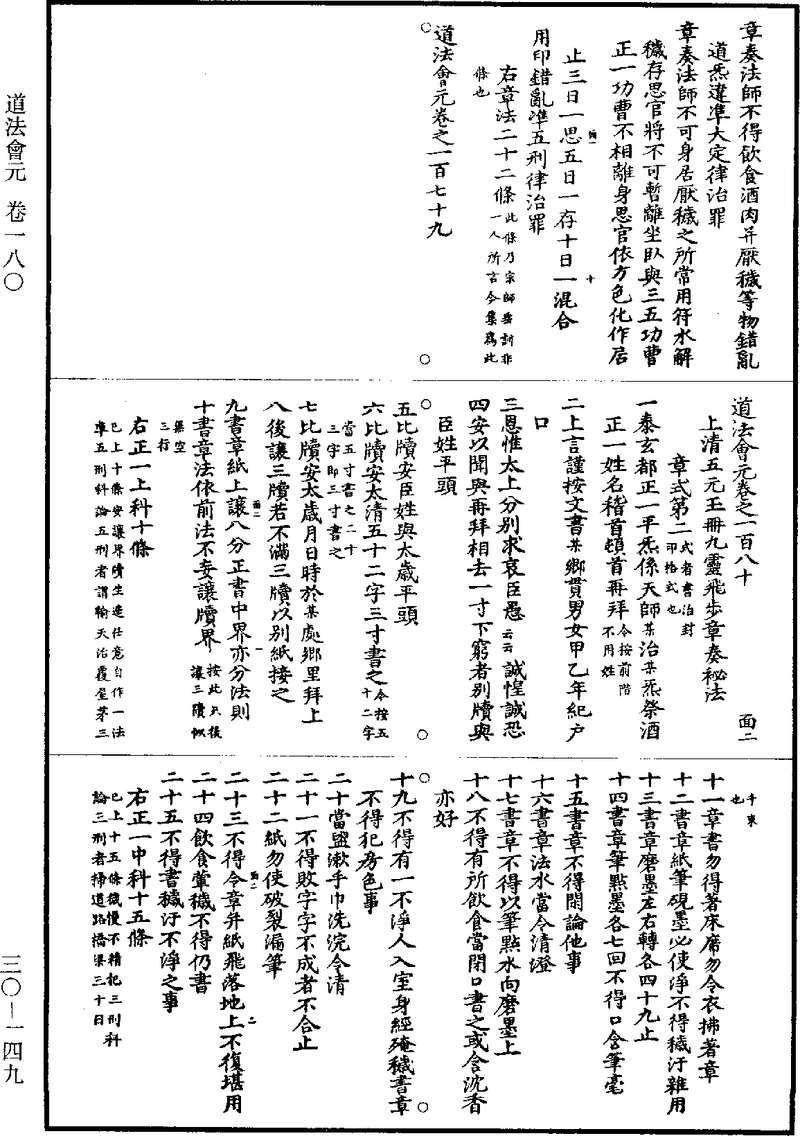 道法會元 卷一八〇
三〇—一四九
章奏法師不得飲食酒肉并厭穢等物錯亂
道炁違準大定律治罪
章奏法師不可身居厭穢之所常用符水解
穢存思官將不可暫離坐臥與三五功曹
正一功曹不相離身思官依方色化作居
止三日一思五日一存十日一混合
用印錯亂準五刑律治罪
右章法二十二條此條乃宗師
一人所言令集為此
條也
道法會元卷之一百七十九
道法會元卷之一百八十
上清五元玉冊九靈飛步章奏秘法
章式第二式者書治封
印格式也
一泰玄都正一平炁係天師某治某炁祭酒
正一姓名稽首頓首再拜令按前階
不用姓
二上言謹按文書某鄉貫男女甲乙年紀戶
口
三恩惟太上分別求哀臣愚云云誠惶誠恐
四安以聞與再拜相去一寸下窮者別牘與
臣姓平頭
五比牘安臣姓與太歲平頭
六比牘安太清五十二字三寸書之今按五
十二字
當五寸書之二十
三字即三寸書之
七比牘安太歲月日時於某處鄉里拜上
八後讓三牘若不滿三牘以別紙接之
九書章紙上讓八分正書中界亦分法則
十書章法依前法不妄讓牘界按此只後
讓三牘似
集空
三行
右正一上科十條
已上十條安讓界牘生違任意自作一法
準五刑科論五刑者謂輸天治覆屋茅三
千束
也
十一章書勿得著床席勿令衣拂著章
十二書章紙筆硯墨必使淨不得穢汙雜用
十三書章磨墨左右轉各四十九止
十四書章筆點墨各七回不得口含筆毫
十五書章不得閑論他事
十六書章法水當令清澄
十七書章不得以筆點水向磨墨上
十八不得有所飲食當閉口書之或含沈香
亦好
十九不得有一不淨人入室身經殗穢書章
不得犯房色事
二十當盥漱手巾洗浣令清
二十一不得敗字字不成者不合止
二十二紙勿使破裂漏筆
二十三不得令章并紙飛落地上不復堪用
二十四飲食葷穢不得仍書
二十五不得書穢汙不淨之事
右正一中科十五條
已上十五條穢慢不精犯三刑科
論三刑者掃道路橋梁三十日